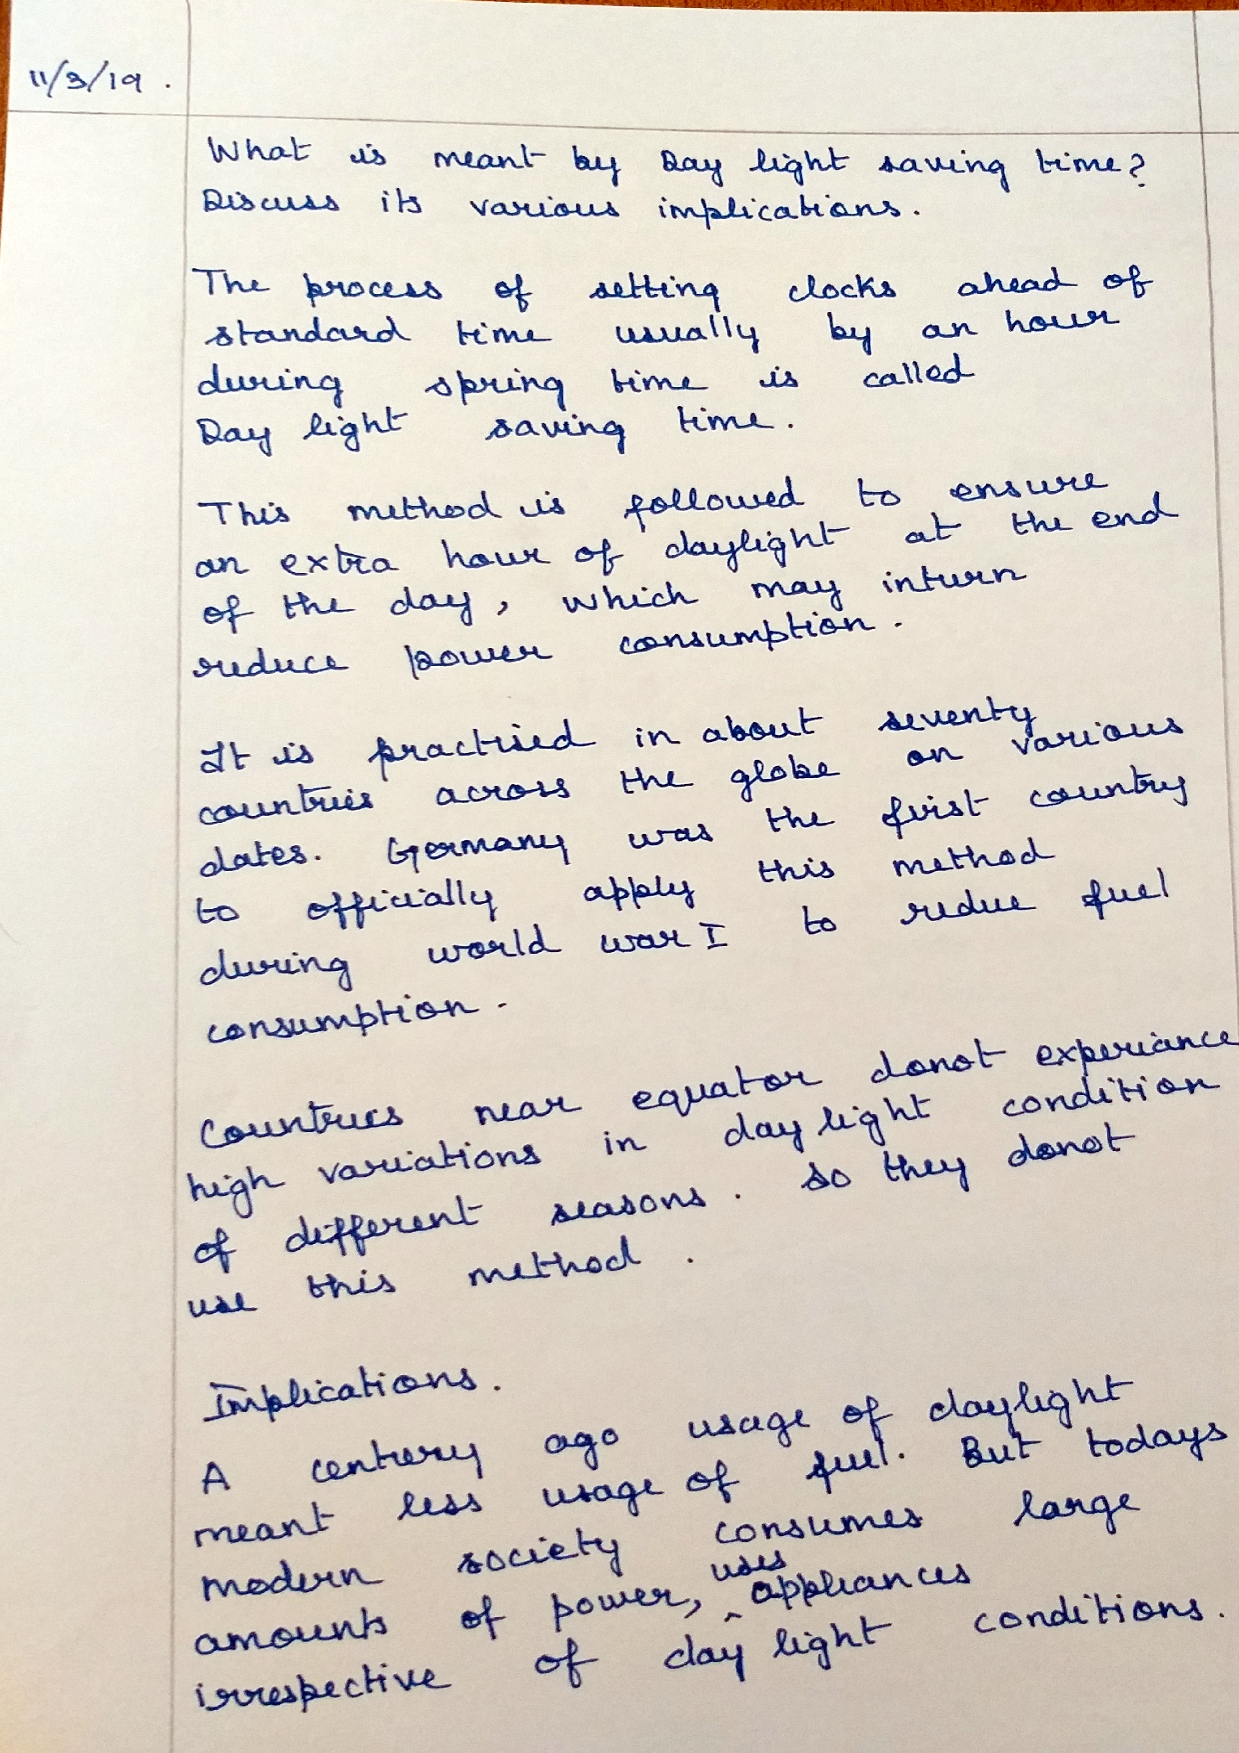 11/3/19.
What is meant by Day light saving time?
Discuss its various implications.
The process of setting clocks ahead of
standard time usually by an hour
during spring time is called
Day light saving time.
This method is followed to ensure
an extra hour of daylight at the end
of the day, which may inturn
reduce power consumption.
It is practised in about seventy
countries across the globe on various
dates. Germany was the first country
to officially apply this method
during world war I to redue fuel
consumption.
Countries near equator donot experiance
high variations in day light condition
of different seasons. So they donot
use this method.
Implications.
A century ago usage of daylight
meant less usage of fuel. But todays
modern society consumes large
amounts of power, uses appliances
irrespective of day light conditions.